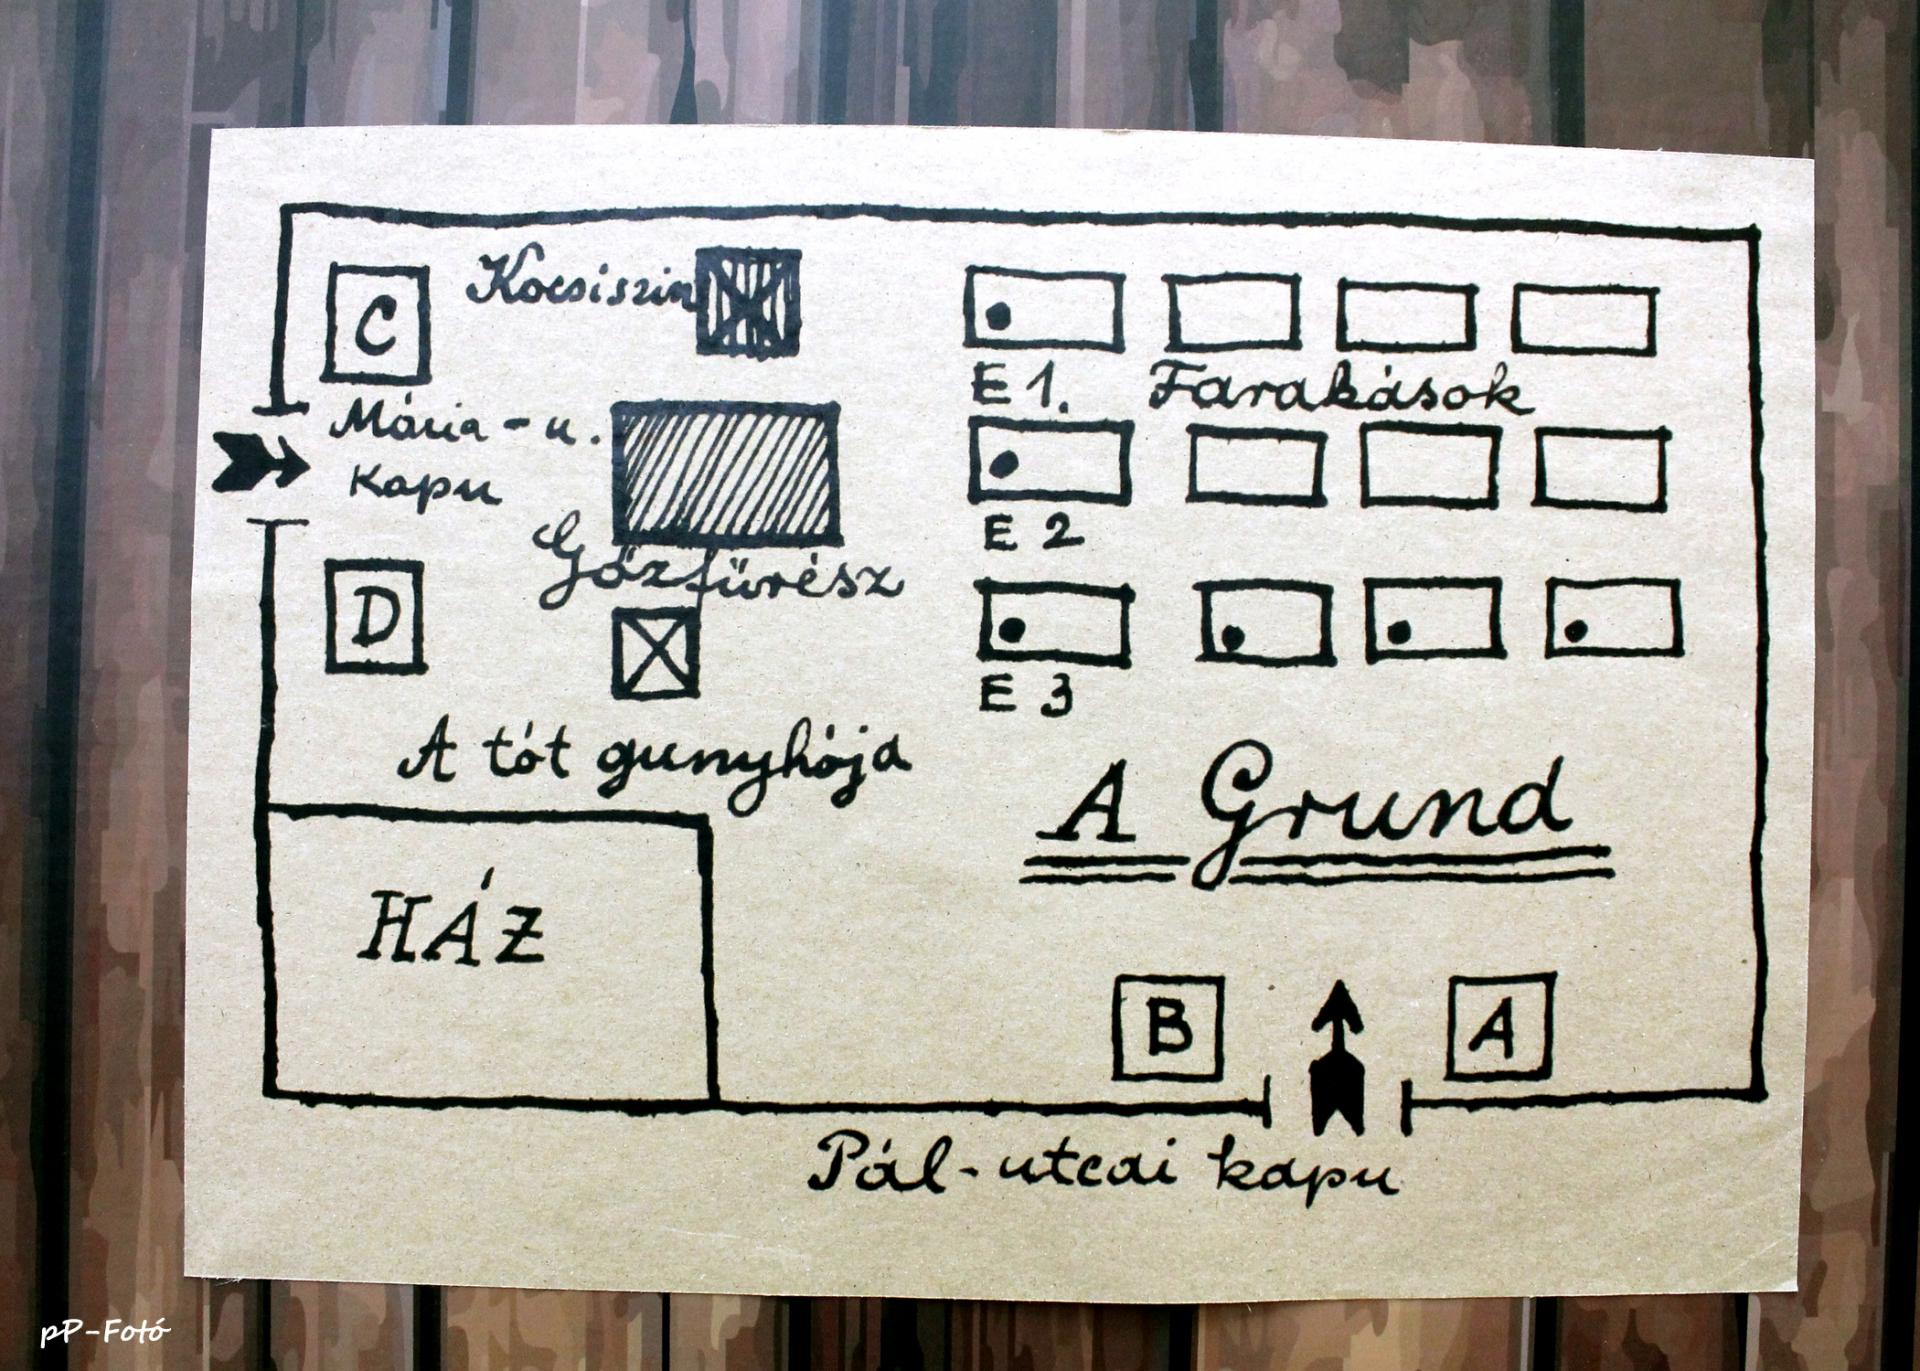 C
Kocsiszin
E 1. Farakások
Mária-u.
Kapu
E 2
Gőzfürész
D
E 3
A tót gunyhója
A Grund
HÁZ
B
A
Pál-utcai kapu
pP-Fotó